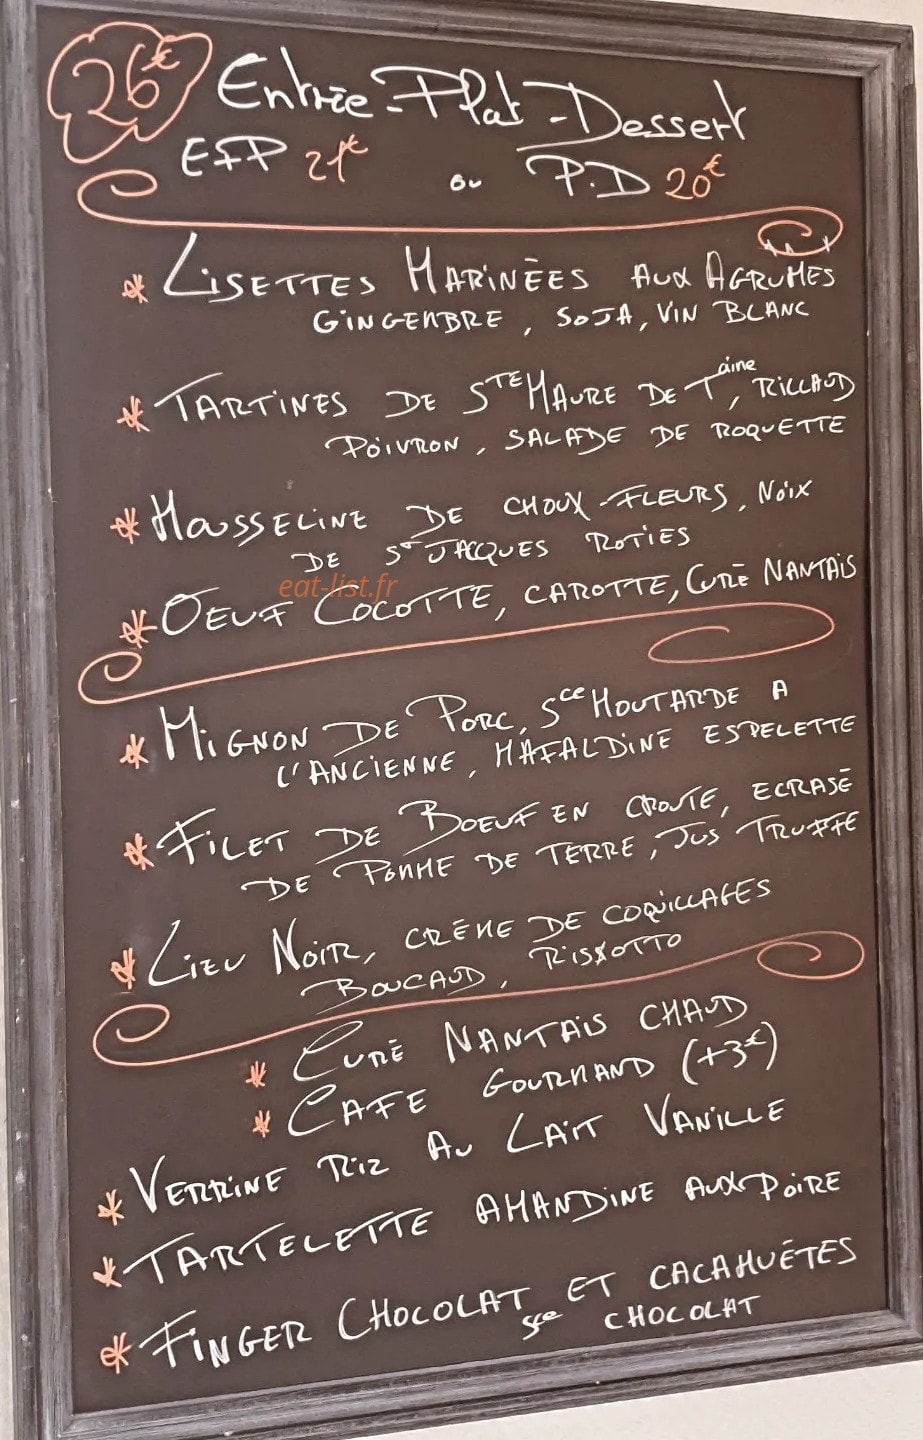 26€ Entrée-Plat-Dessert
E+P 21€ ou P.D 20€
* LISETTES MARINÉES AUX AGRUMES
GINGEMBRE, SOJA, VIN BLANC
* TARTINES DE STE MAURE DE Taine, RILLAUD
POIVRON, SALADE DE ROQUETTE
* MOUSSELINE DE CHOUX-FLEURS, NOIX
DE ST JACQUES ROTIES
eat-list.fr
* OEUF COCOTTE, CAROTTE, CURÉ NANTAIS
* MIGNON DE PORC, Sce MOUTARDE A
L'ANCIENNE, MAFALDINE ESPELETTE
* FILET DE BOEUF EN CROUTE, ECRASÉ
DE POMME DE TERRE, JUS TRUFFE
* LIEU NOIR, CRÈME DE COQUILLAGES
BOUCAUD, RISSOTTO
* CURÉ NANTAIS CHAUD
* CAFE GOURMAND (+3€)
* VERRINE RIZ AU LAIT VANILLE
* TARTELETTE AMANDINE AUX POIRE
* FINGER CHOCOLAT ET CACAHUÉTES
Sce CHOCOLAT